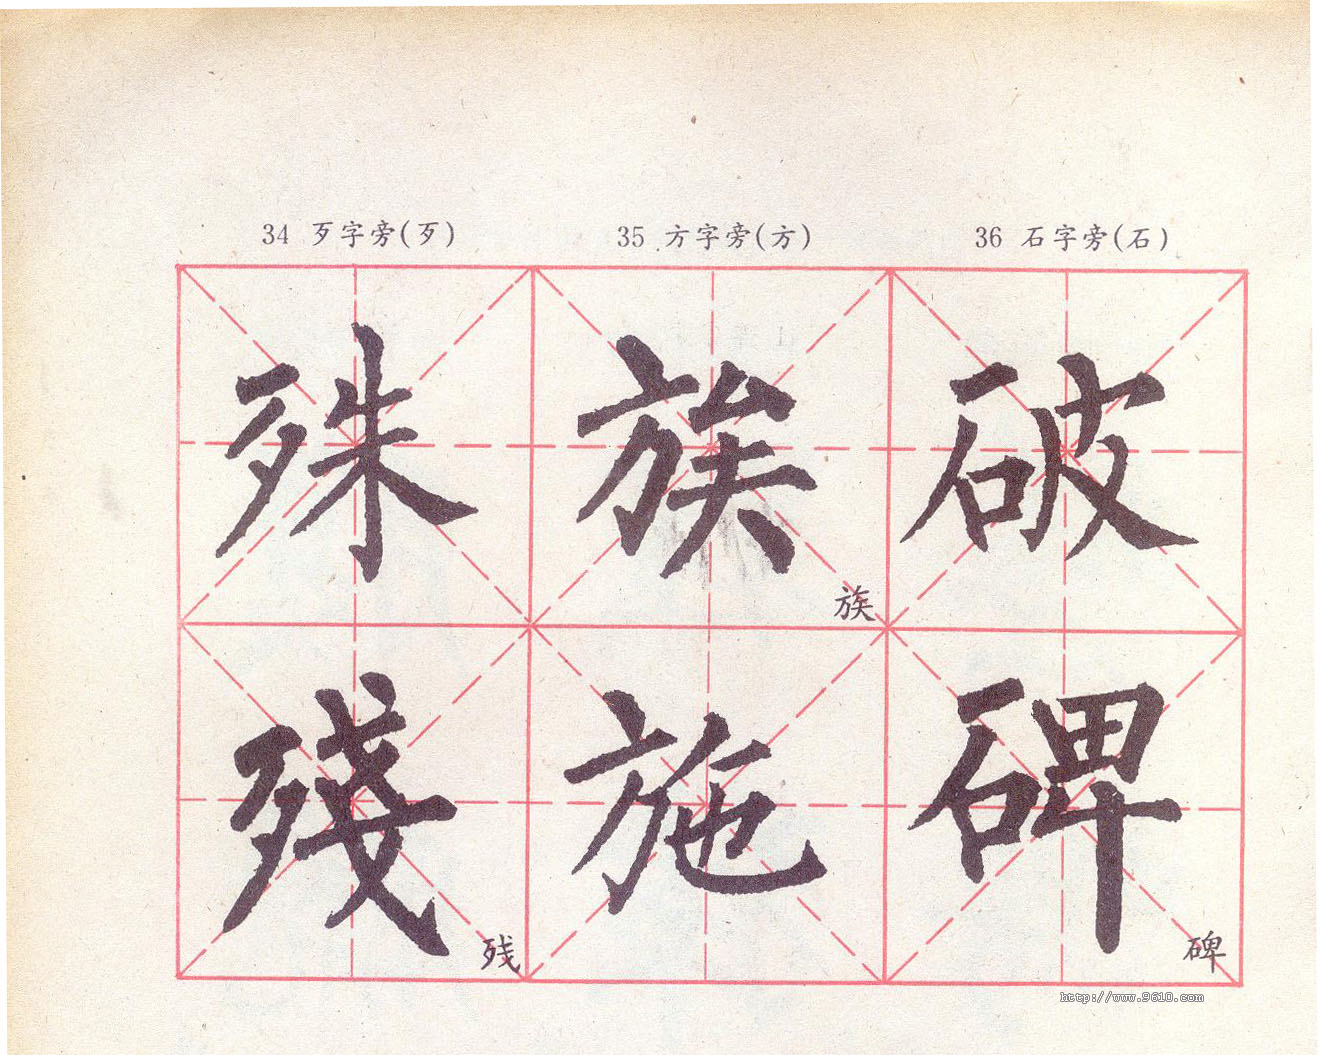 34 歹字旁(歹) 35 方字旁(方) 36 石字旁(石)
殊 族 破
族
殘 施 碑
残 碑
http://www.9610.com